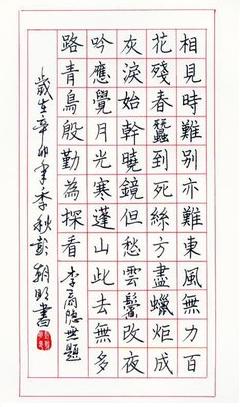 相見時難别亦難東風無力百
花殘春蠶到死絲方盡蠟炬成
灰淚始幹曉鏡但愁雲鬢改夜
吟應覺月光寒蓬山此去無多
路青鳥殷勤為探看 李商隐無題
歲在辛卯年季秋彭朝明書